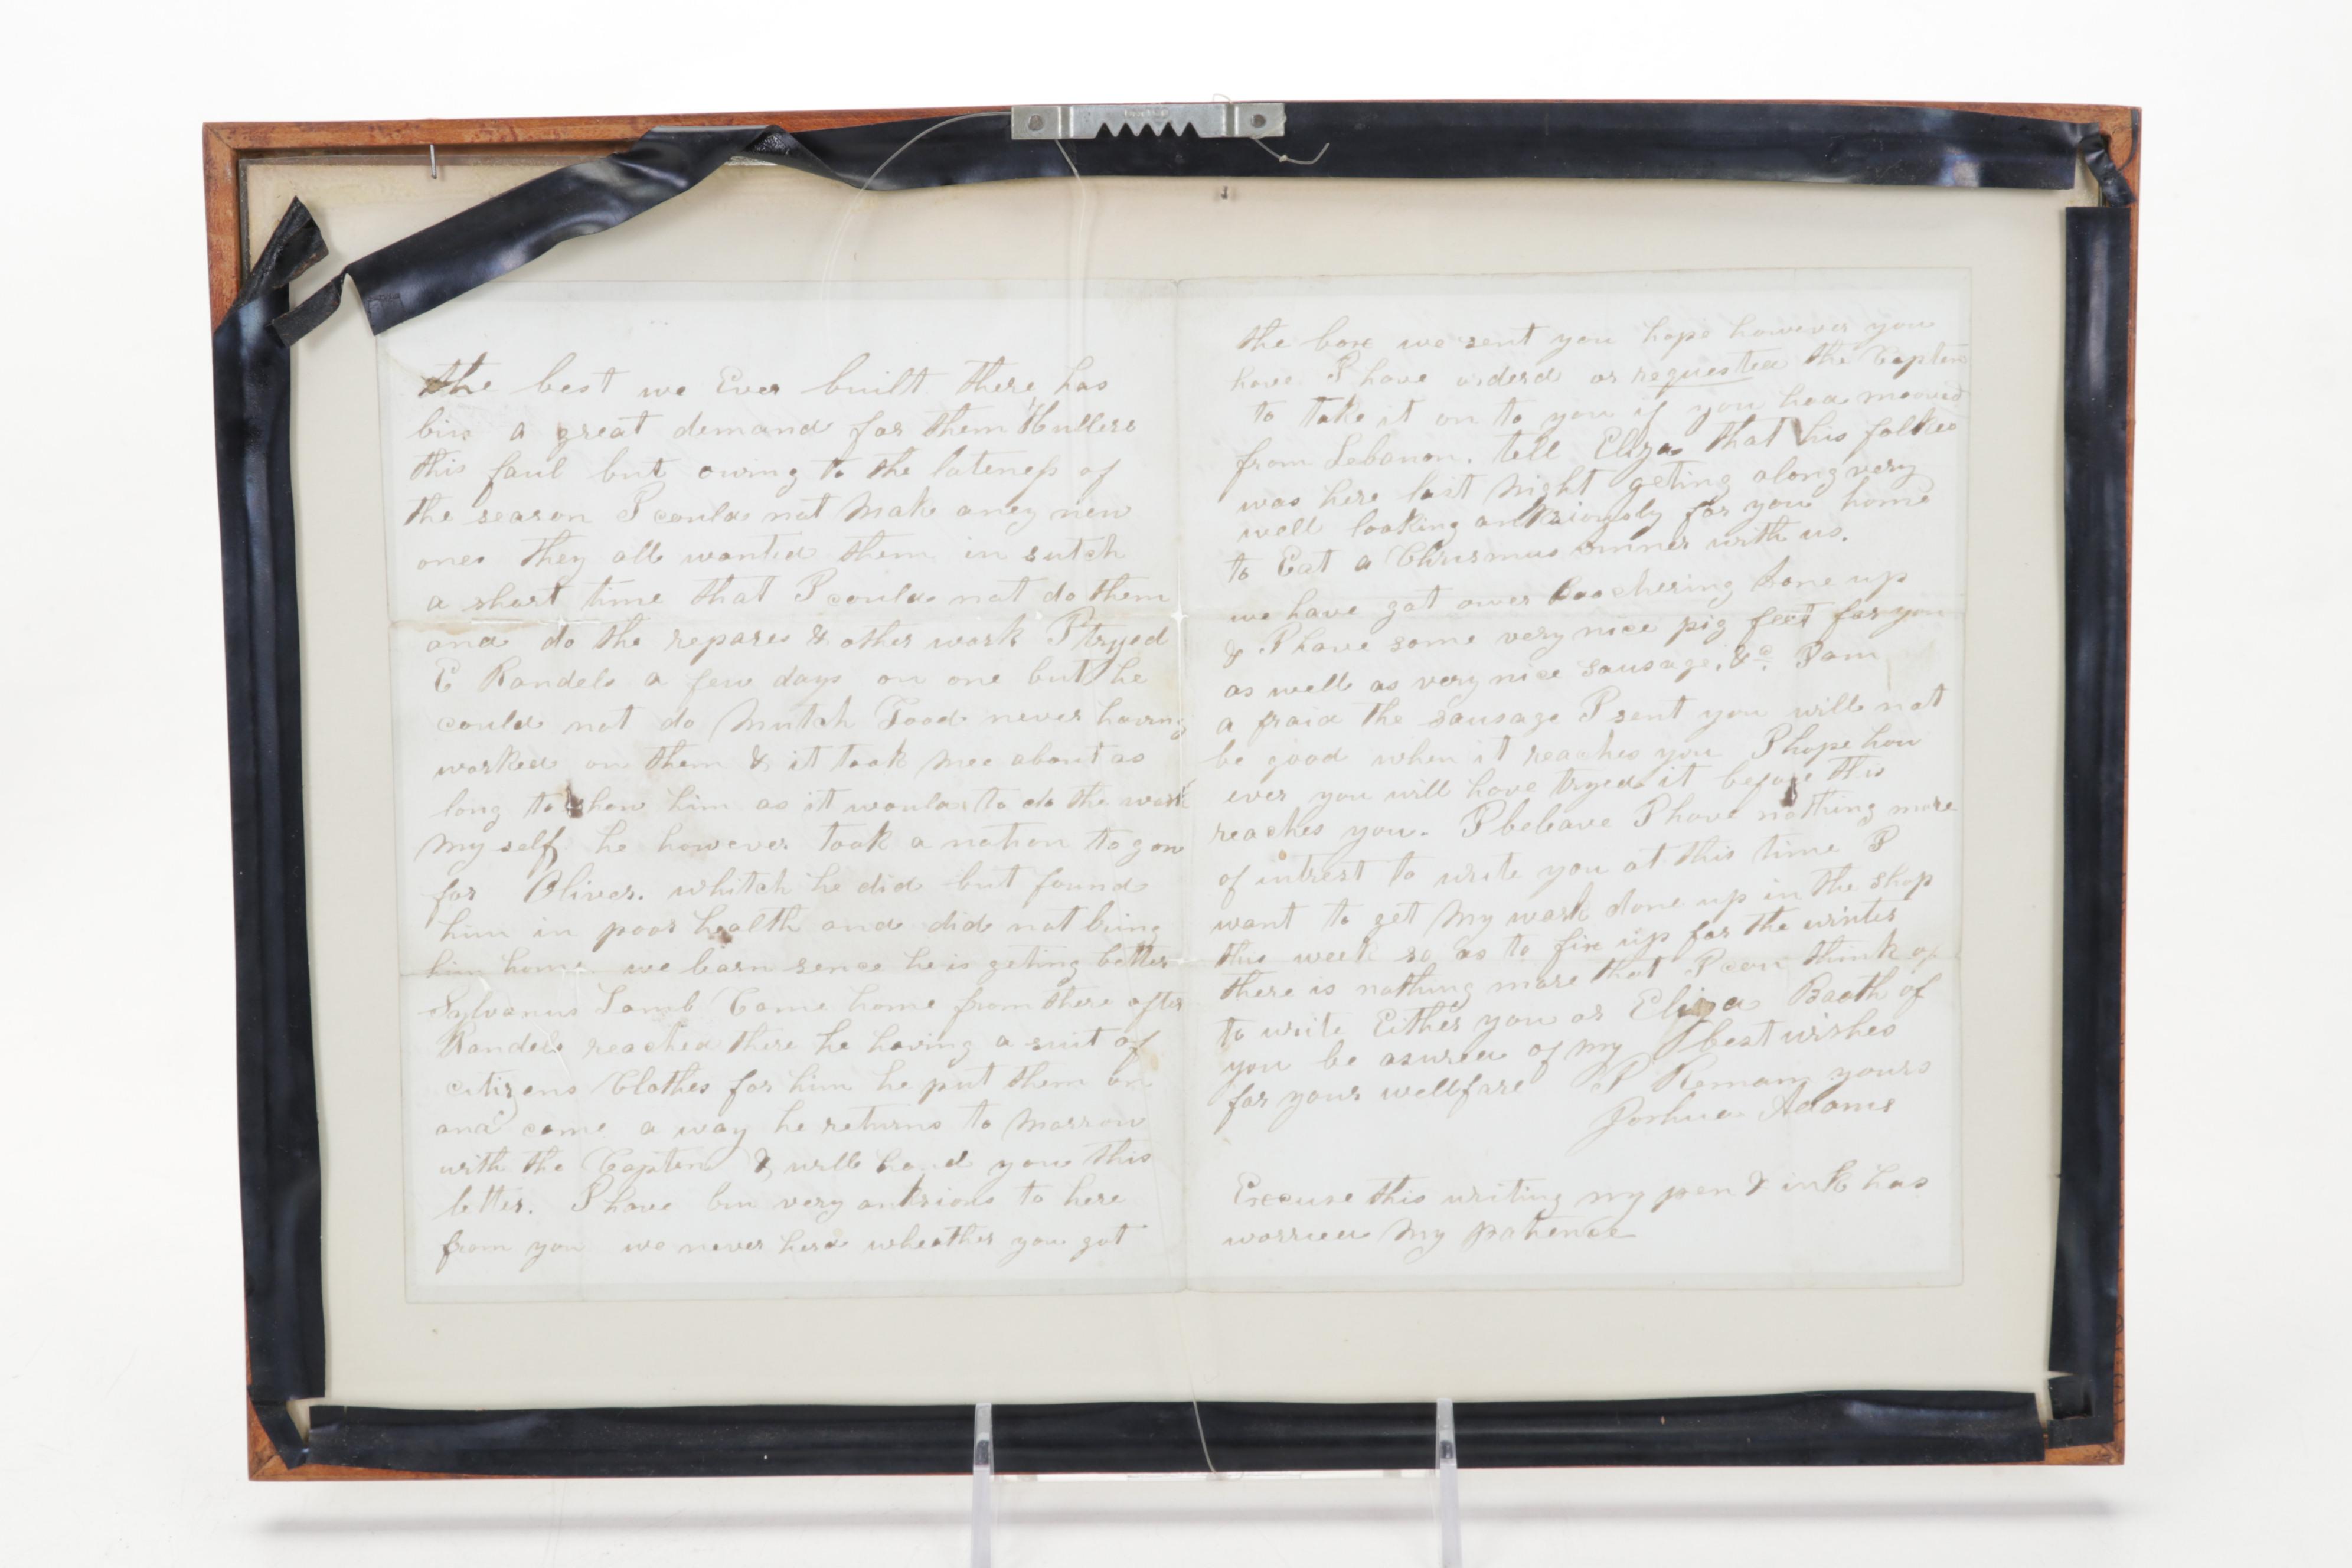 the best we Ever built there has
bin a great demand for them Hullers
this faul but owing to the lateness of
the season I could not Make aney new
ones they all wanted them in sutch
a short time that I could not do them
and do the repares & other work I tryed
E Randels a few days on one but he
could not do Mutch Good never having
worked on them & it took mee about as
long to show him as it would to do the work
My self. he however took a notion to gow
for Oliver. whitch he did but found
him in poor health and did not bring
him home. we learn sence he is geting better
Sylvanus Lamb Came home from there after
Randels reached there he having a suit of
citizens Clothes for him he put them on
and came a way he returns to Morrow
with the Capten & will hand you this
letter. I have bin very ankxious to here
from you we never herd wheather you got
the box we sent you hope however you
have I have orderd or requested the Capten
to take it on to you if you had mooved
from Lebanon. tell Eliza that his folkes
was here last Night geting along very
well looking ankxiously for you home
to Eat a Chrismus Dinner with us.
we have got ower Boochering Done up
& I have some very nice pig feet for you
as well as very nice Sausage, &c. I am
a fraid the Sausage I sent you will not
be good when it reaches you I hope how
ever you will have tryed it before this
reaches you. I beleave I have nothing more
of intrest to write you at this time I
want to get My work done up in the Shop
this week so as to fix up for the winter
there is nothing more that I can think of
to write Either you or Eliza Booth of
you be asured of My best wishes
for your wellfare I Remain yours
Joshua Adams
Excuse this writing my pen & ink has
worried My patience